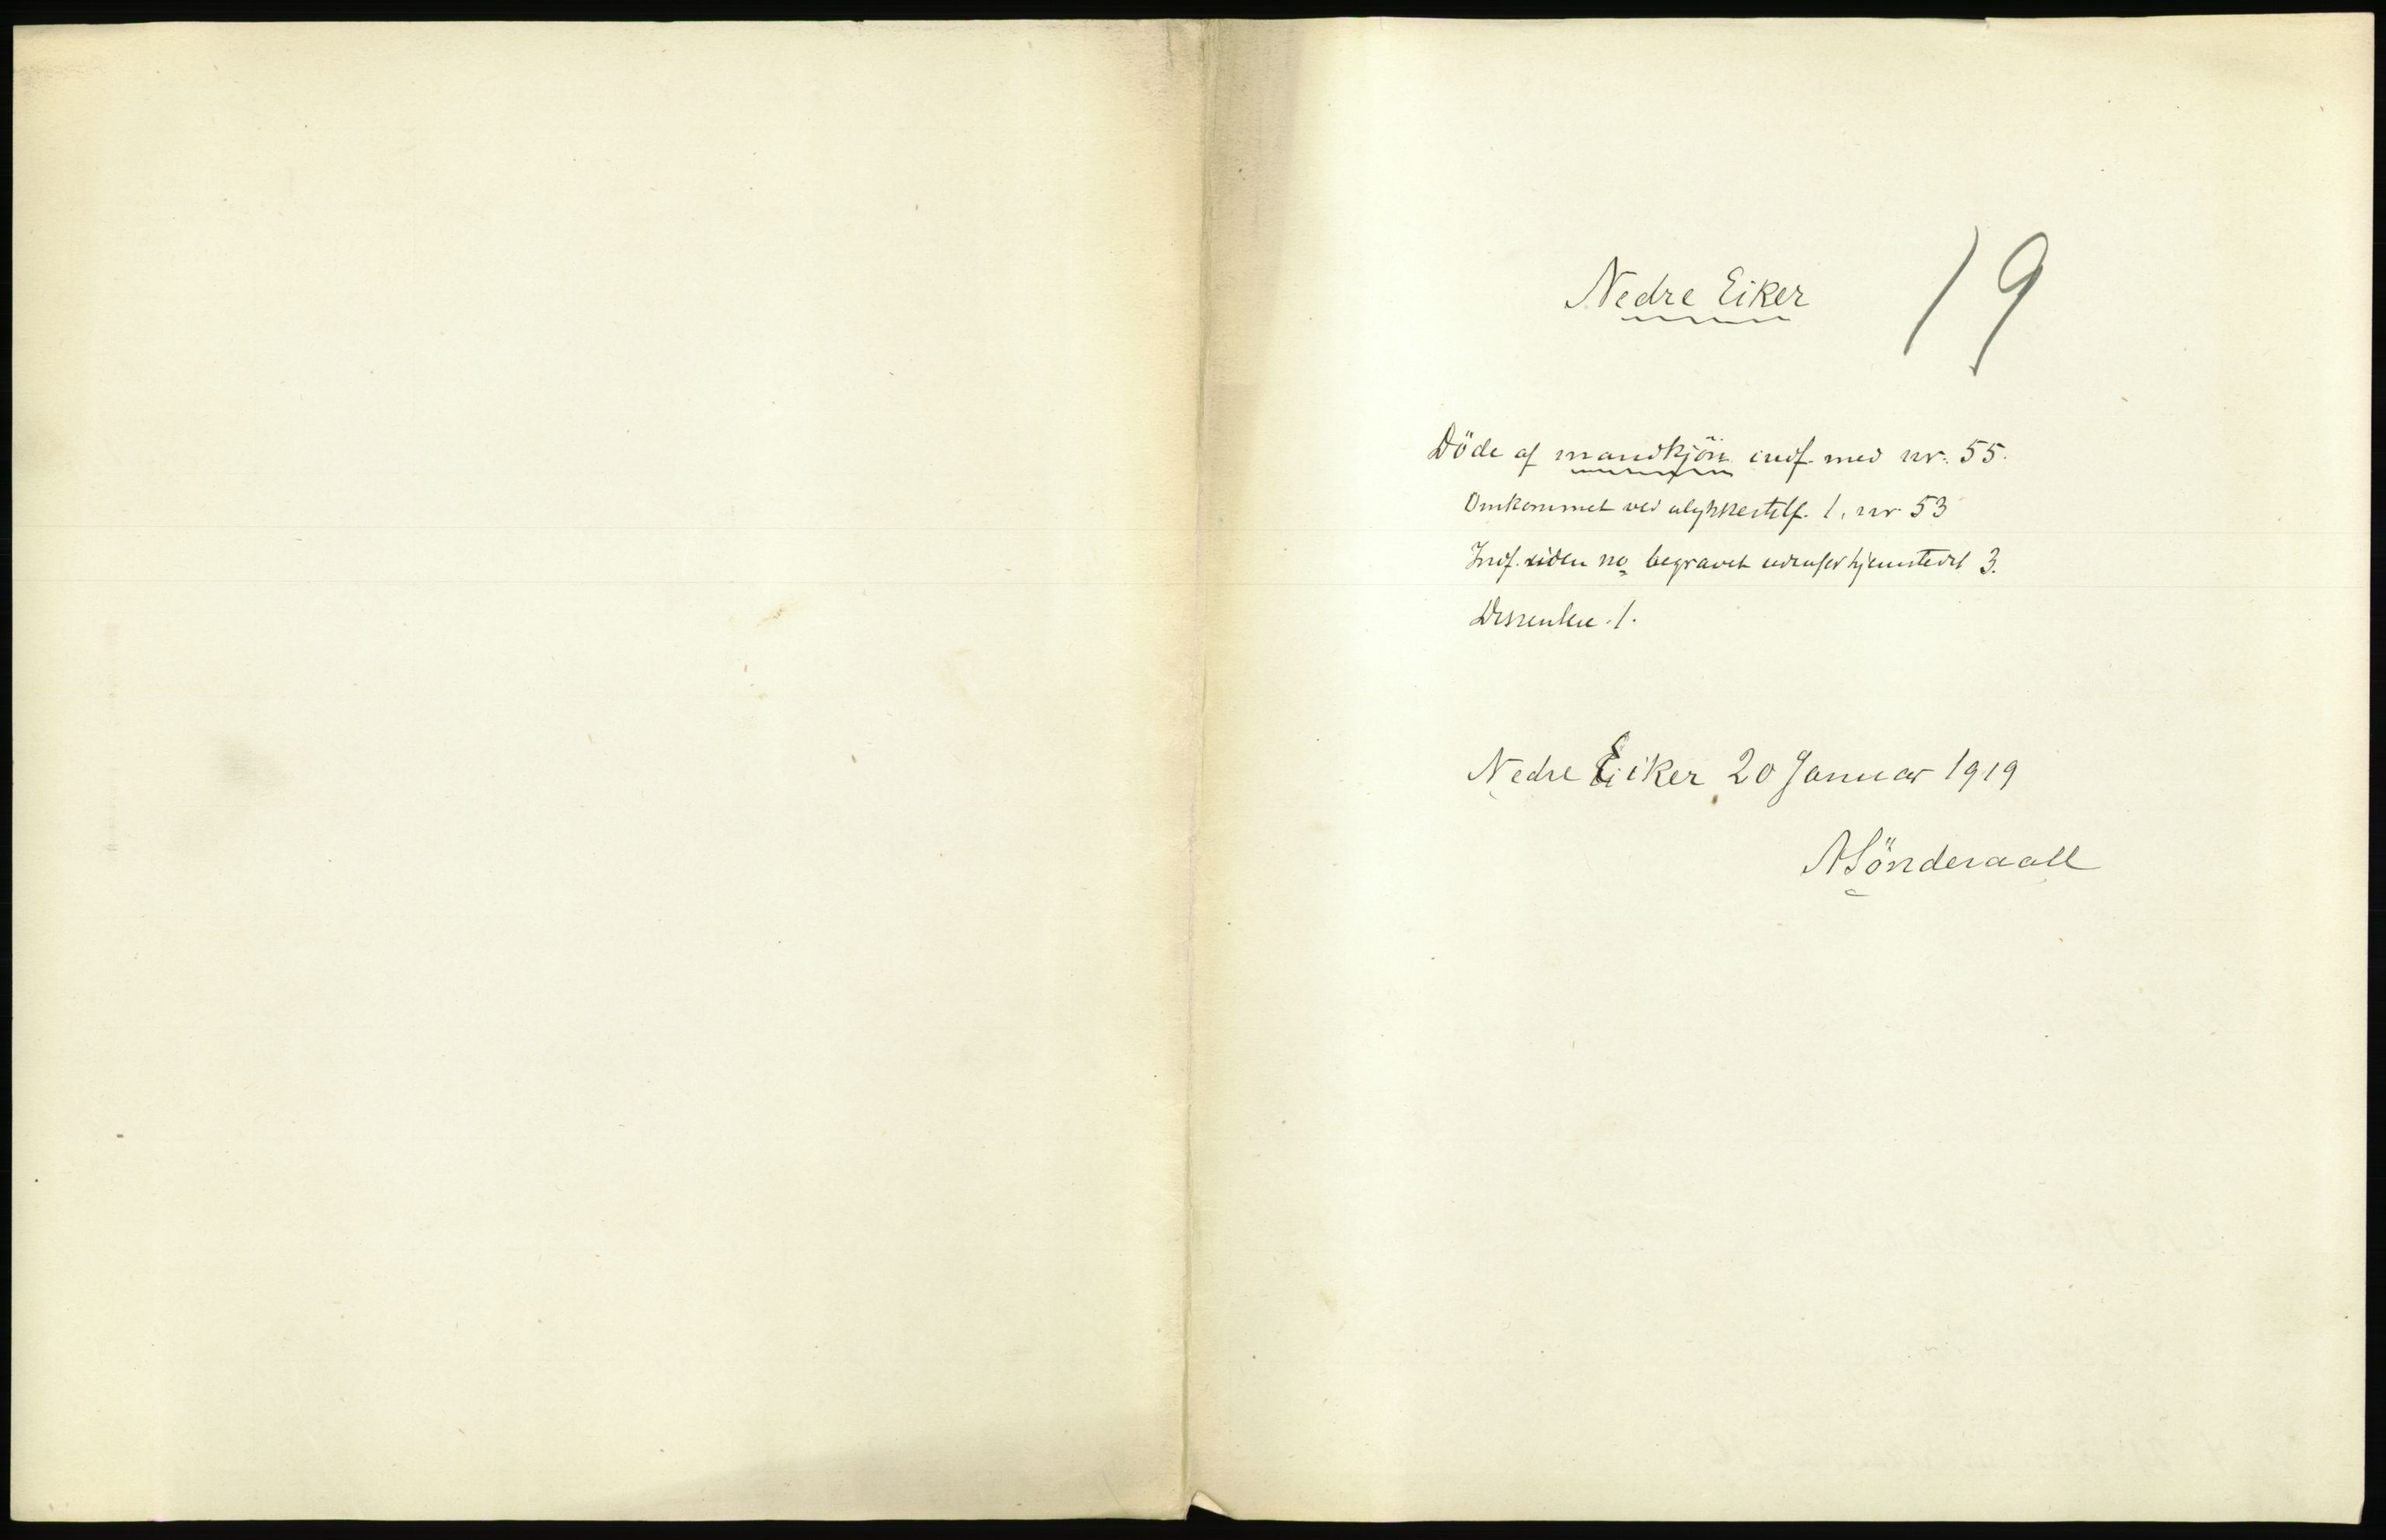 Nedre Eiker
19
Döde af mandkjön indf. med nr. 55.
Omkommet ved ulykkestilf. 1, nr 53
Indf. siden no begravet udenfor hjemstedet 3.
Dissenter. 1.
Nedre Eiker 20 Januar 1919
ASönderaall